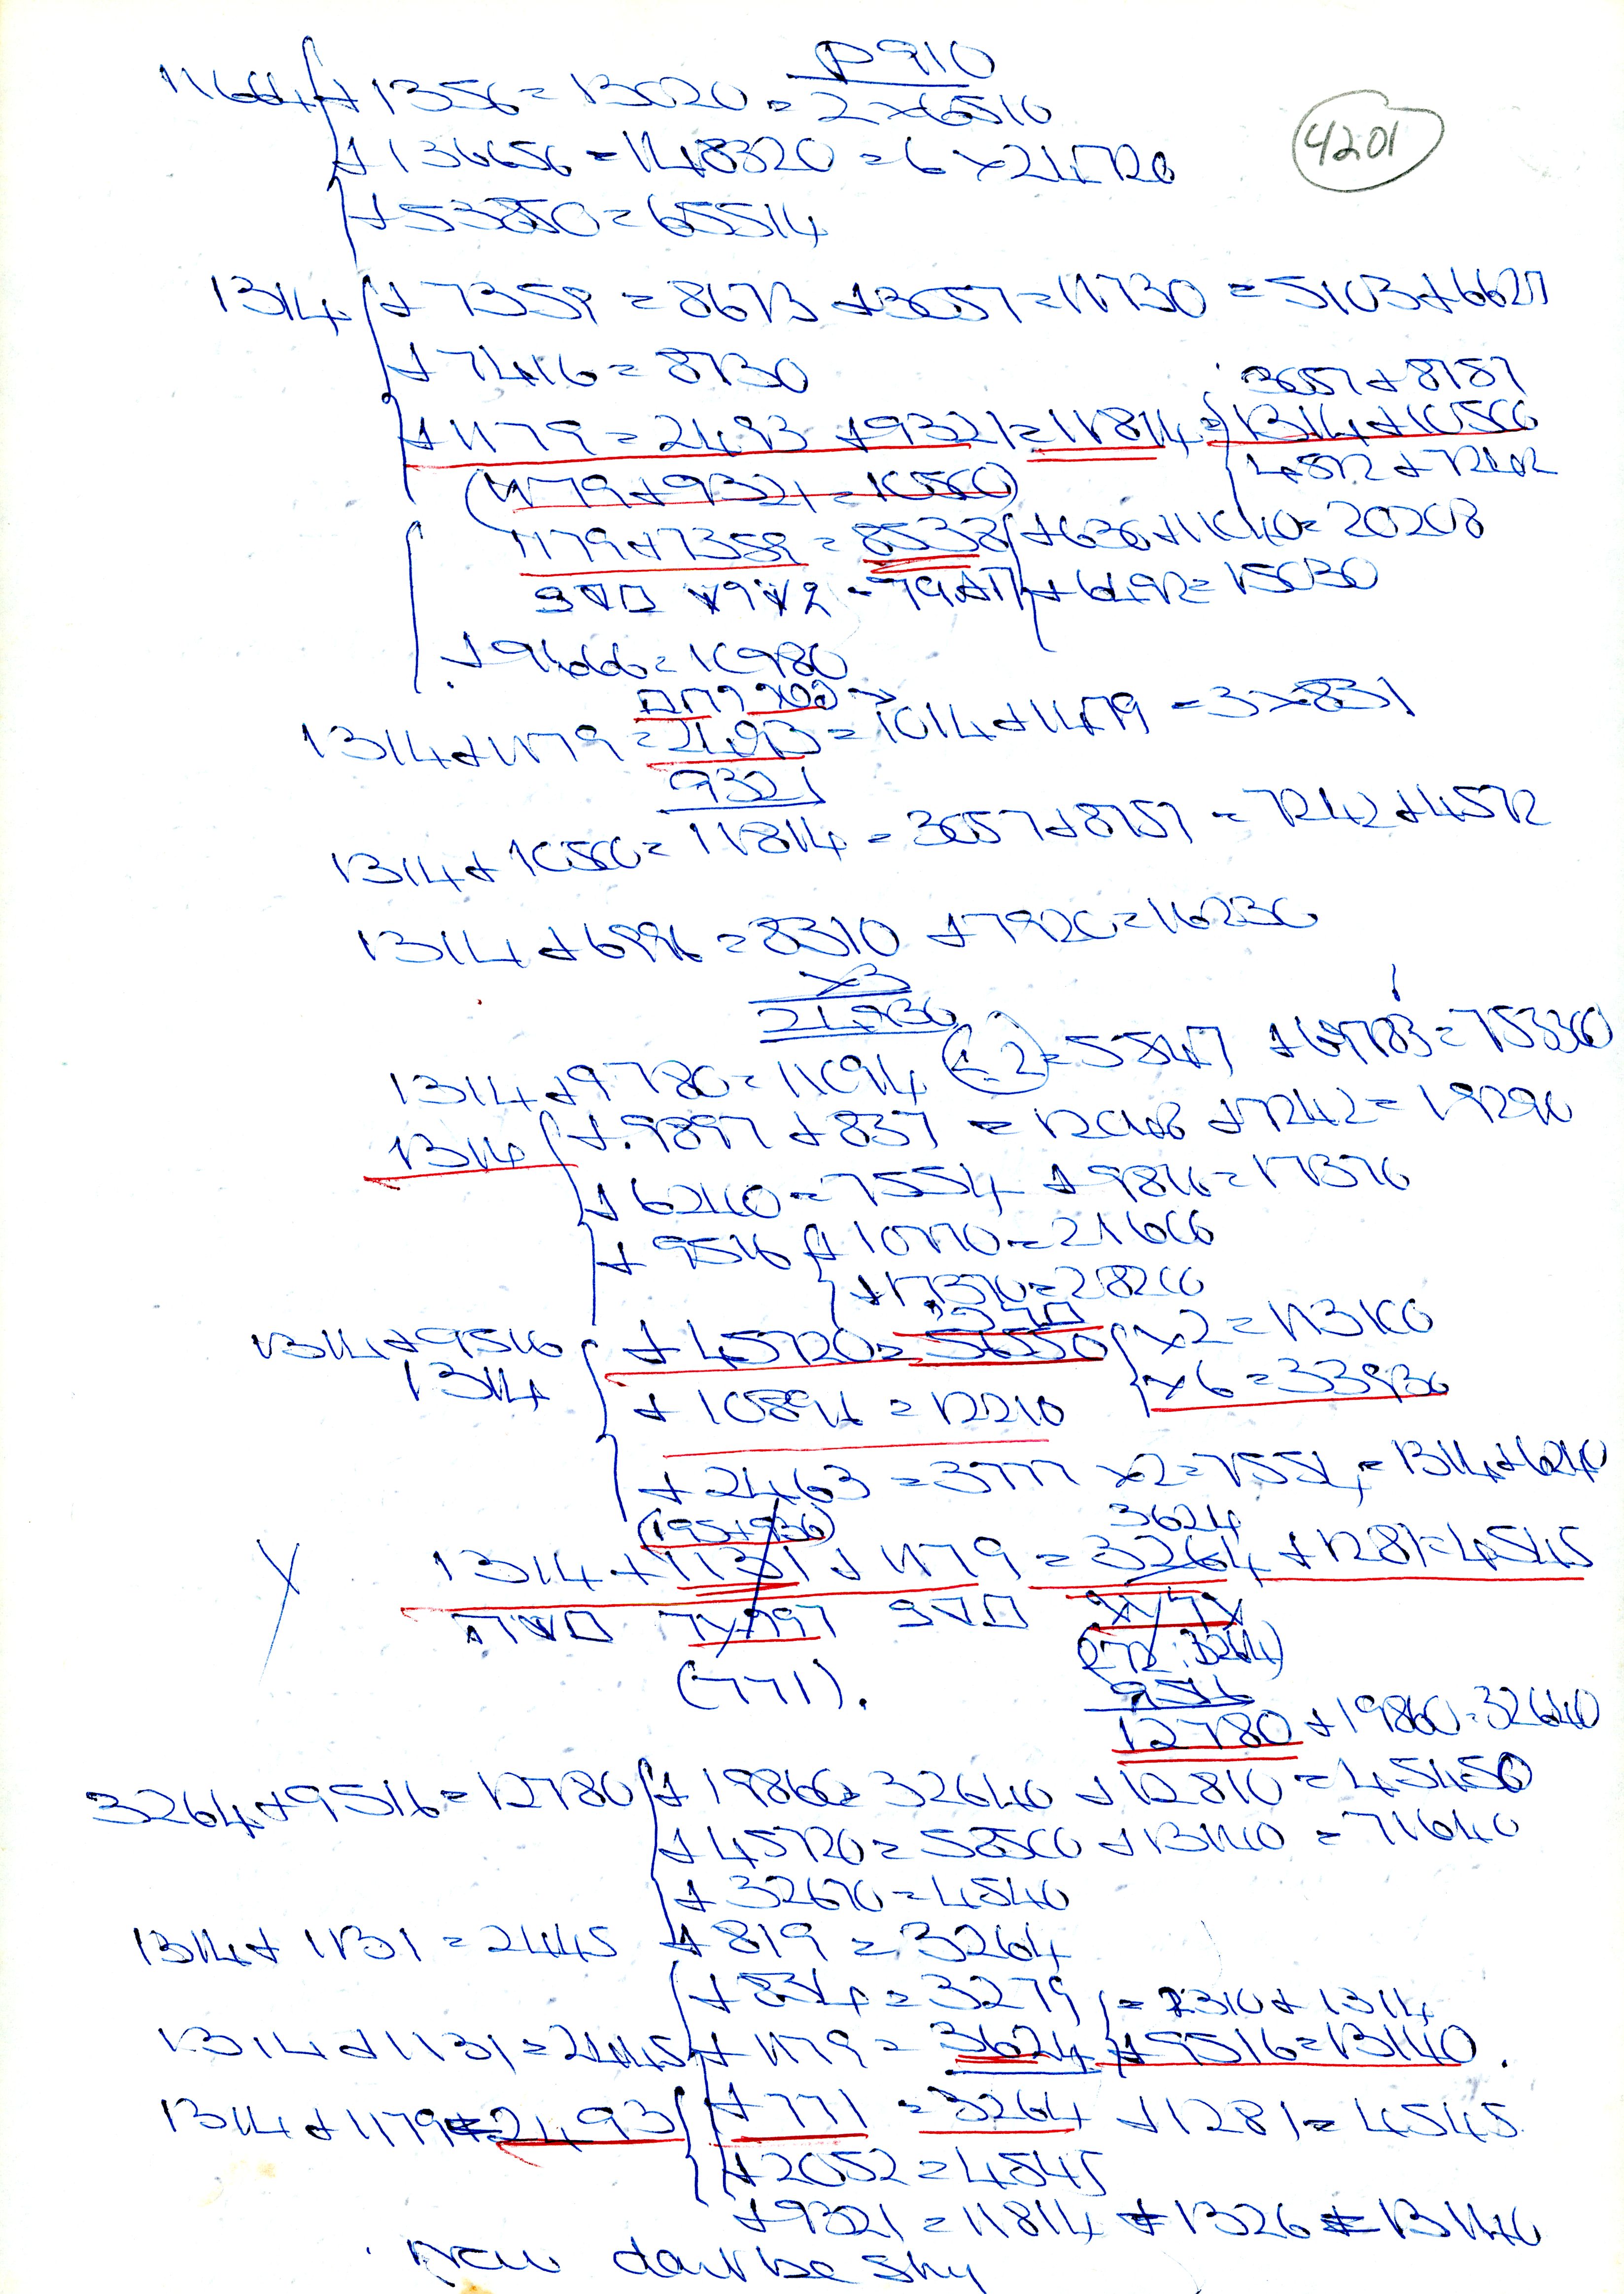 D910
11664 + 1356 = 13020 = 2×6510
4201
+ 136656 = 148320 = 6×24720
+ 53850 = 65514
1314 + 7359 = 8673 + 3057 = 11730 = 5103 + 6627
+ 7416 = 8730
3057 + 8757
+ 1179 = 2493 + 9321 = 11814 = 1314 + 10500
4572 + 7242
(1179 + 9321 = 10500)
1179 + 7359 = 8538 + 630 + 11040 = 20208
+ 6492 = 15030
+ 9666 = 10980
1314 + 1179 = 2493 = 1014 + 1479 = 3×831
9321
1314 + 10500 = 11814 = 3057 + 8757 = 7242 + 4572
1314 + 6996 = 8310 + 7920 = 16230
×3
24930
1314 + 9780 = 11094 (÷2) = 5547 + 69783 = 75330
1314 + 9897 + 837 = 12048 + 7242 = 19290
+ 6240 = 7554 + 9816 = 17370
+ 9516 + 10770 = 21600
+ 17370 = 28200
1314 + 9516 + 45720 = 56550 ×2 = 113100
1314 + 10896 = 12210 ×6 = 339300
+ 2463 = 3777 ×2 = 7554 = 1314 + 6240
(195 + 936) 3624
1314 + 1131 + 1179 = 3264 + 1281 = 4545
(771).
(272 : 3264)
9516
12780 + 19860 = 32640
3264 + 9516 = 12780 + 19860 = 32640 + 12810 = 45450
+ 45720 = 58500 + 13140 = 71640
+ 32670 = 4540
1314 + 1131 = 2445 + 819 = 3264
+ 834 = 3279 = 2310 + 1314
1314 + 1131 = 2445 + 1179 = 3624 + 9516 = 13140.
1314 + 1179 = 2493 + 771 = 3264 + 1281 = 4545
+ 2052 = 4545
+ 9321 = 11814 + 1326 = 13140